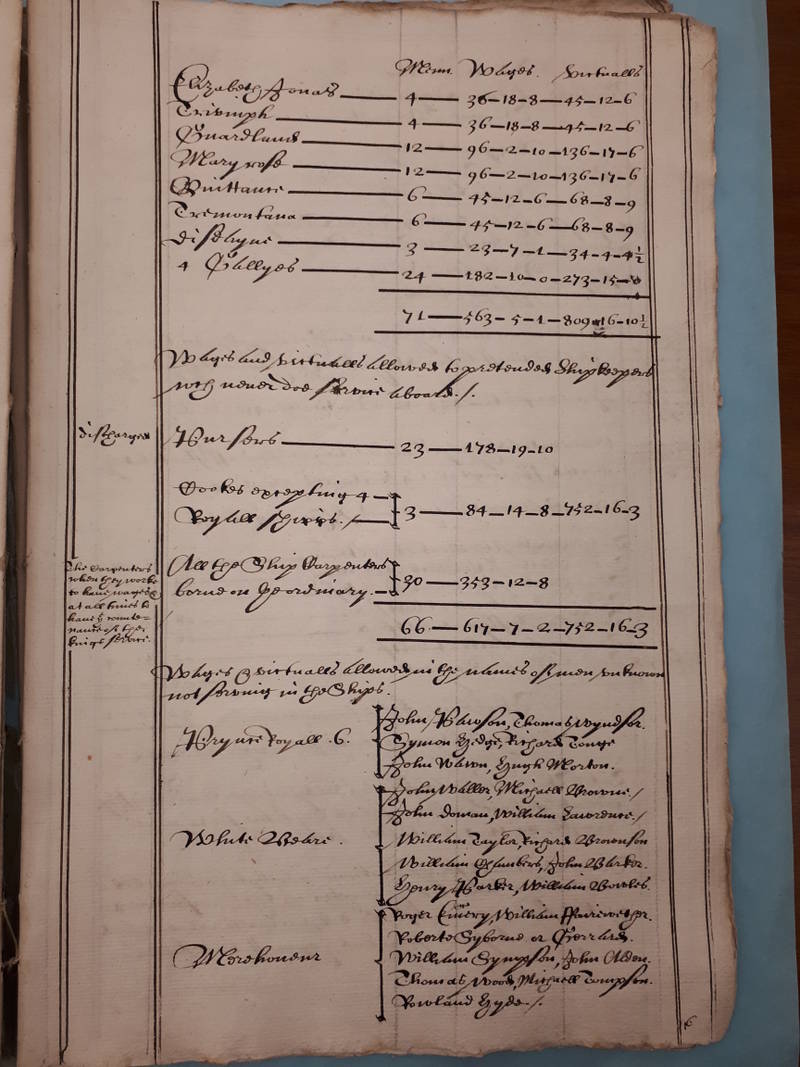 Menn Wages Victualls
Elizabeth Jonas 4 36-18-8 45-12-6
Triumph 4 36-18-8 45-12-6
Guardland 12 96-2-10 136-17-6
Mary rose 12 96-2-10 136-17-6
Quittance 6 45-12-6 68-8-9
Tremontana 6 45-12-6 68-8-9
disdayne 3 23-7-1 34-4-4½
4 Gallyes 24 182-10-0 273-15-0
71 563-5-1 809-16-10½
Wages and victualls allowed to pretended Shipkeepers
wch never doe service aboard./.
discharged Pursers 23 178-19-10
Cookes excepting 4
Royall shipps./ 3 84-14-8 752-16-3
The Carpenters
when they worke
to have wages &
at all times to
have
the
kings service.
All the Ship Carpenters
borne on ye ordinary. 30 353-12-8
66 617-7-2 752-16-3
Wages & victualls allowed in the names of men unknown
not serving in the Ships.
Prynce Royall .6. John Pawson, Thomas Wyndsor.
Symon Hedge, Richard Tonge
John Wawn, Hugh Morton.
White Beare. John Waller, Michaell Browne./
John Doman, William Lawrence./
William Taylor, Richard Brownson
William Chambers, John Barker.
Henry Parker, William Bowles.
Merehoneur Roger Emery, William Fairewether.
Roberte Syborne or Gerrard.
William Sympson, John Alden.
Thomas Wood, Michaell Tompson.
Rowland Hyde./.
6